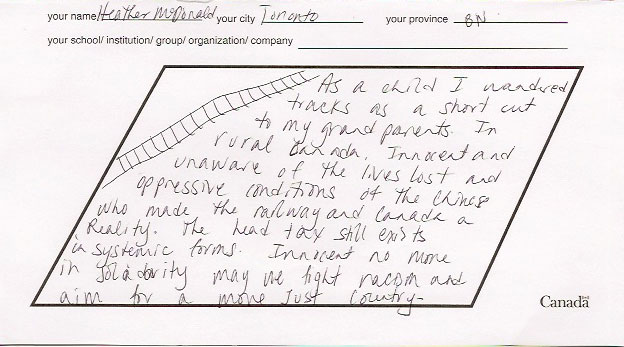 your name Heather McDonald your city Toronto your province ON
your school/ institution/ group/ organization/ company
As a child I wandered
tracks as a short cut
to my grandparents. In
rural Canada. Innocent and
unaware of the lives lost and
oppressive conditions of the Chinese
who made the railway and Canada a
Reality. The head tax still exists
in systemic forms. Innocent no more
in solidarity may we fight racism and
aim for a more Just Country-
Canada